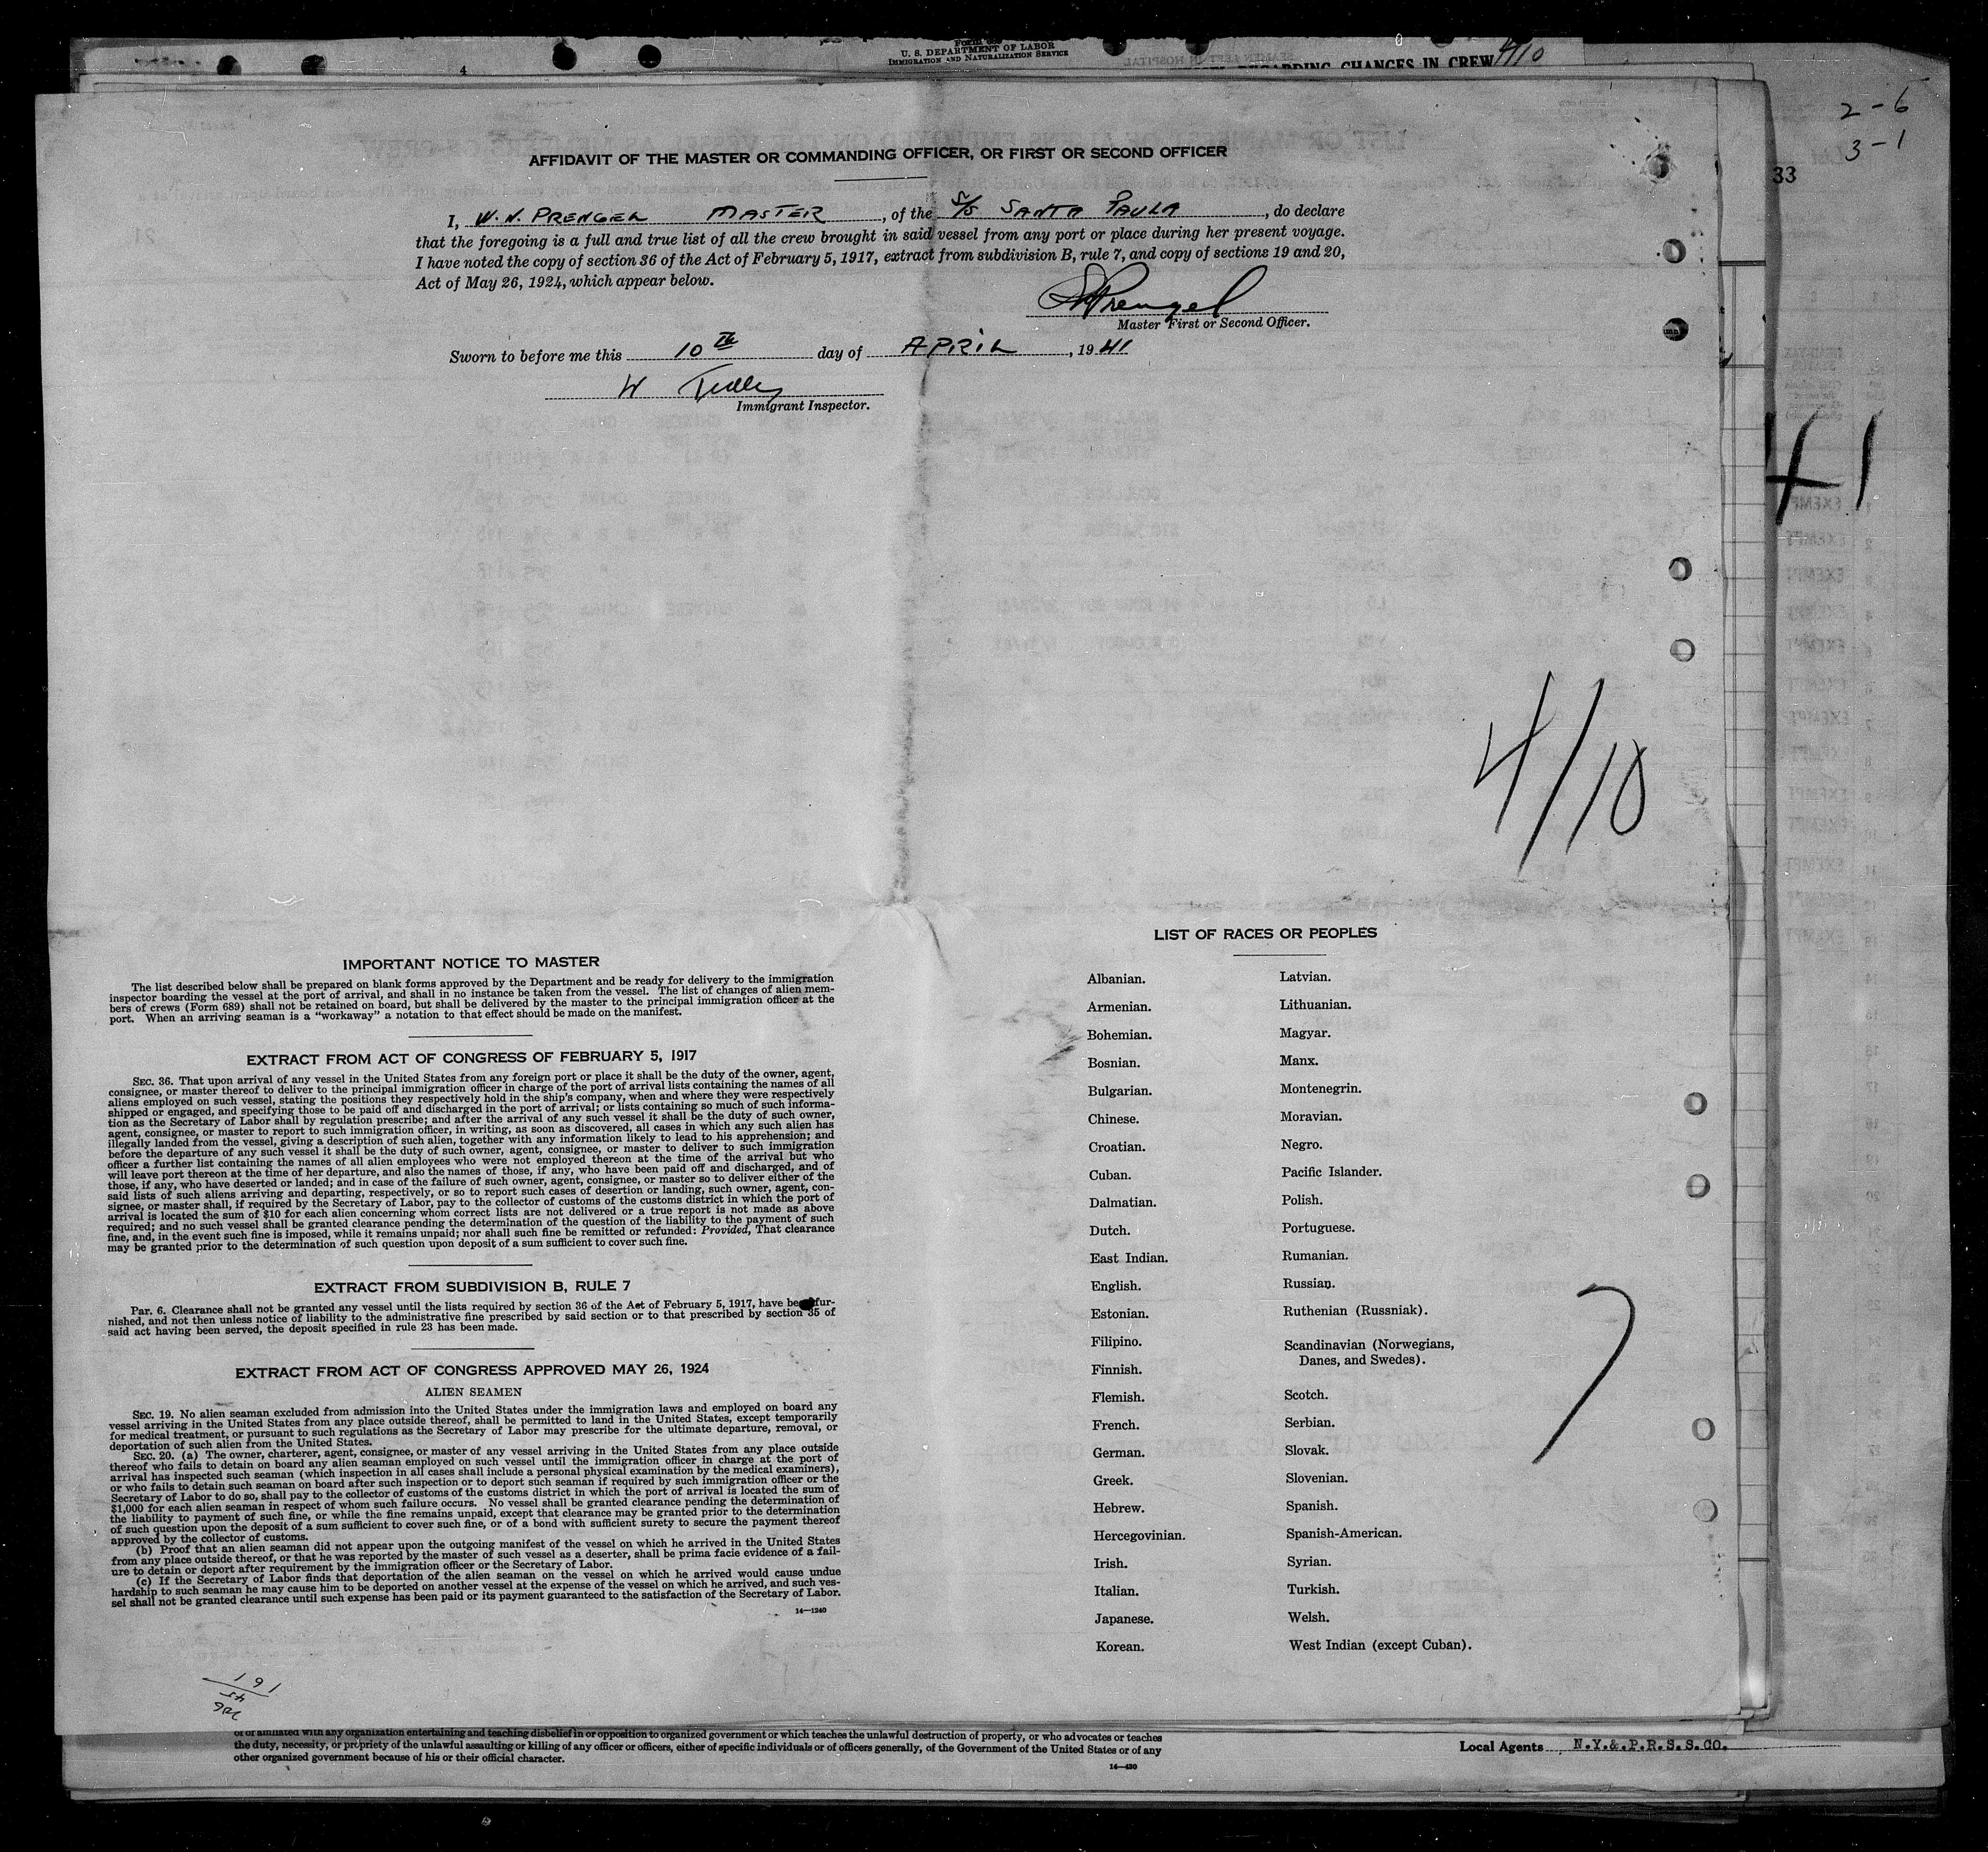 U. S. DEPARTMENT OF LABOR
IMMIGRATION AND NATURALIZATION SERVICE
CHANGES IN CREW
4/10
2-6
3-1
33
AFFIDAVIT OF THE MASTER OR COMMANDING OFFICER, OR FIRST OR SECOND OFFICER
I, W. N. PRENGEL MASTER, of the S/S SANTA PAULA, do declare
that the foregoing is a full and true list of all the crew brought in said vessel from any port or place during her present voyage.
I have noted the copy of section 36 of the Act of February 5, 1917, extract from subdivision B, rule 7, and copy of sections 19 and 20,
Act of May 26, 1924, which appear below.
Prengel
Master First or Second Officer.
Sworn to before me this 10th day of APRIL, 1941
W
Immigrant Inspector.
41
4/10
IMPORTANT NOTICE TO MASTER
The list described below shall be prepared on blank forms approved by the Department and be ready for delivery to the immigration
inspector boarding the vessel at the port of arrival, and shall in no instance be taken from the vessel. The list of changes of alien mem-
bers of crews (Form 689) shall not be retained on board, but shall be delivered by the master to the principal immigration officer at the
port. When an arriving seaman is a “workaway” a notation to that effect should be made on the manifest.
EXTRACT FROM ACT OF CONGRESS OF FEBRUARY 5, 1917
SEC. 36. That upon arrival of any vessel in the United States from any foreign port or place it shall be the duty of the owner, agent,
consignee, or master thereof to deliver to the principal immigration officer in charge of the port of arrival lists containing the names of all
aliens employed on such vessel, stating the positions they respectively hold in the ship's company, when and where they were respectively
shipped or engaged, and specifying those to be paid off and discharged in the port of arrival; or lists containing so much of such informa-
tion as the Secretary of Labor shall by regulation prescribe; and after the arrival of any such vessel it shall be the duty of such owner,
agent, consignee, or master to report to such immigration officer, in writing, as soon as discovered, all cases in which any such alien has
illegally landed from the vessel, giving a description of such alien, together with any information likely to lead to his apprehension; and
before the departure of any such vessel it shall be the duty of such owner, agent, consignee, or master to deliver to such immigration
officer a further list containing the names of all alien employees who were not employed thereon at the time of the arrival but who
will leave port thereon at the time of her departure, and also the names of those, if any, who have been paid off and discharged, and of
those, if any, who have deserted or landed; and in case of the failure of such owner, agent, consignee, or master so to deliver either of the
said lists of such aliens arriving and departing, respectively, or so to report such cases of desertion or landing, such owner, agent, con-
signee, or master shall, if required by the Secretary of Labor, pay to the collector of customs of the customs district in which the port of
arrival is located the sum of $10 for each alien concerning whom correct lists are not delivered or a true report is not made as above
required; and no such vessel shall be granted clearance pending the determination of the question of the liability to the payment of such
fine, and, in the event such fine is imposed, while it remains unpaid; nor shall such fine be remitted or refunded: Provided, That clearance
may be granted prior to the determination of such question upon deposit of a sum sufficient to cover such fine.
EXTRACT FROM SUBDIVISION B, RULE 7
Par. 6. Clearance shall not be granted any vessel until the lists required by section 36 of the Act of February 5, 1917, have been fur-
nished, and not then unless notice of liability to the administrative fine prescribed by said section or to that prescribed by section 35 of
said act having been served, the deposit specified in rule 23 has been made.
EXTRACT FROM ACT OF CONGRESS APPROVED MAY 26, 1924
ALIEN SEAMEN
SEC. 19. No alien seaman excluded from admission into the United States under the immigration laws and employed on board any
vessel arriving in the United States from any place outside thereof, shall be permitted to land in the United States, except temporarily
for medical treatment, or pursuant to such regulations as the Secretary of Labor may prescribe for the ultimate departure, removal, or
deportation of such alien from the United States.
SEC. 20. (a) The owner, charterer, agent, consignee, or master of any vessel arriving in the United States from any place outside
thereof who fails to detain on board any alien seaman employed on such vessel until the immigration officer in charge at the port of
arrival has inspected such seaman (which inspection in all cases shall include a personal physical examination by the medical examiners),
or who fails to detain such seaman on board after such inspection or to deport such seaman if required by such immigration officer or the
Secretary of Labor to do so, shall pay to the collector of customs of the customs district in which the port of arrival is located the sum of
$1,000 for each alien seaman in respect of whom such failure occurs. No vessel shall be granted clearance pending the determination of
the liability to payment of such fine, or while the fine remains unpaid, except that clearance may be granted prior to the determination
of such question upon the deposit of a sum sufficient to cover such fine, or of a bond with sufficient surety to secure the payment thereof
approved by the collector of customs.
(b) Proof that an alien seaman did not appear upon the outgoing manifest of the vessel on which he arrived in the United States
from any place outside thereof, or that he was reported by the master of such vessel as a deserter, shall be prima facie evidence of a fail-
ure to detain or deport after requirement by the immigration officer or the Secretary of Labor.
(c) If the Secretary of Labor finds that deportation of the alien seaman on the vessel on which he arrived would cause undue
hardship to such seaman he may cause him to be deported on another vessel at the expense of the vessel on which he arrived, and such ves-
sel shall not be granted clearance until such expense has been paid or its payment guaranteed to the satisfaction of the Secretary of Labor.
14—1240
LIST OF RACES OR PEOPLES
Albanian.
Armenian.
Bohemian.
Bosnian.
Bulgarian.
Chinese.
Croatian.
Cuban.
Dalmatian.
Dutch.
East Indian.
English.
Estonian.
Filipino.
Finnish.
Flemish.
French.
German.
Greek.
Hebrew.
Hercegovinian.
Irish.
Italian.
Japanese.
Korean.
Latvian.
Lithuanian.
Magyar.
Manx.
Montenegrin.
Moravian.
Negro.
Pacific Islander.
Polish.
Portuguese.
Rumanian.
Russian.
Ruthenian (Russniak).
Scandinavian (Norwegians,
Danes, and Swedes).
Scotch.
Serbian.
Slovak.
Slovenian.
Spanish.
Spanish-American.
Syrian.
Turkish.
Welsh.
West Indian (except Cuban).
7
191
of or affiliated with any organization entertaining and teaching disbelief in or opposition to organized government or which teaches the unlawful destruction of property, or who advocates or teaches
the duty, necessity, or propriety of the unlawful assaulting or killing of any officer or officers, either of specific individuals or of officers generally, of the Government of the United States or of any
other organized government because of his or their official character.
14—430
Local Agents N.Y.&.P.R.S.S.CO.